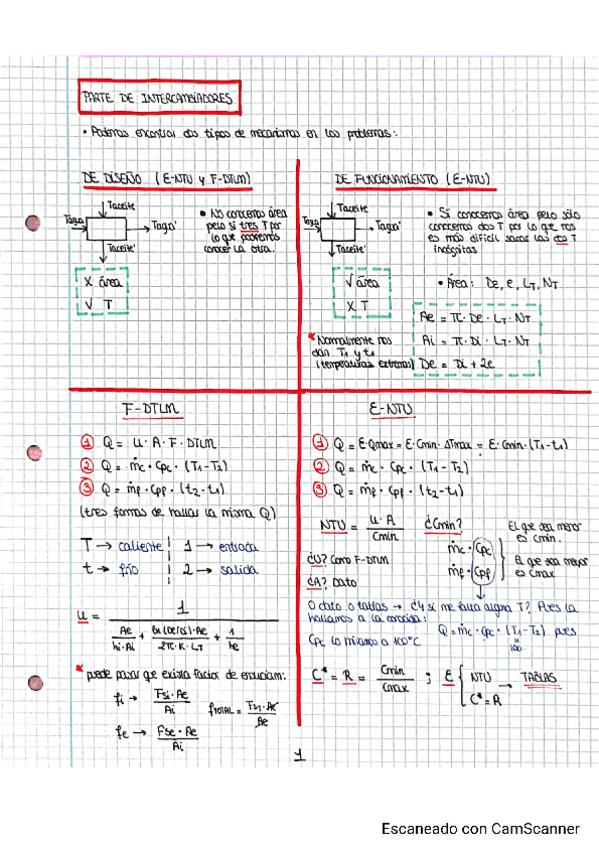 PARTE DE INTERCAMBIADORES
• Podemos encontrar dos tipos de mecanismos en los problemas:
DE DISEÑO (E-NTU y F-DTLM)
Taceite
Tagua Tagua'
Taceite'
• No conocemos área
pero sí tres T por
lo que podremos
conocer la otra.
X área
√ T
DE FUNCIONAMIENTO (E-NTU)
Taceite
Tagua Tagua'
Taceite'
• Sí conocemos área pero sólo
conocemos dos T por lo que nos
es más difícil sacar las dos T
incógnitas
√ área
X T
• Área: De, e, LT, NT
Ae = π · De · LT · NT
Ai = π · Di · LT · NT
De = Di + 2e
* Normalmente nos
dan T1 y t1
(temperaturas extremas)
F-DTLM
① Q = U · A · F · DTLM
② Q = ṁc · Cpc · (T1-T2)
③ Q = ṁf · Cpf · (t2-t1)
(tres formas de hallar la misma Q)
T → caliente 1 → entrada
t → frío 2 → salida
U = 1 / (Ae/(hi·Ai) + (Ln(De/Di)·Ae)/(2π·K·LT) + 1/he)
* puede pasar que exista factor de ensuciam:
fi → Fsi·Ae / Ai
fTOTAL = Fsi·Ae / Ae
fe → Fse·Ae / Ai
E-NTU
① Q = E·Qmax = E·Cmin·ΔTmax = E·Cmin·(T1-t1)
② Q = ṁc · Cpc · (T1-T2)
③ Q = ṁf · Cpf · (t2-t1)
NTU = U·A / Cmin
¿Cmin?
ṁc · Cpc
ṁf · Cpf
El que sea menor
es Cmin.
El que sea mayor
es Cmax
¿U? Como F-DTLM
¿A? Dato
O dato o tablas → ¿Y si me falta alguna T? Pues la
hallamos a la conocida: Q = ṁc · Cpc · (T1-T2) pues
100
Cpc lo miramos a 100°C
C* = R = Cmin / Cmax ; E { NTU C* = R → TABLAS
1
Escaneado con CamScanner